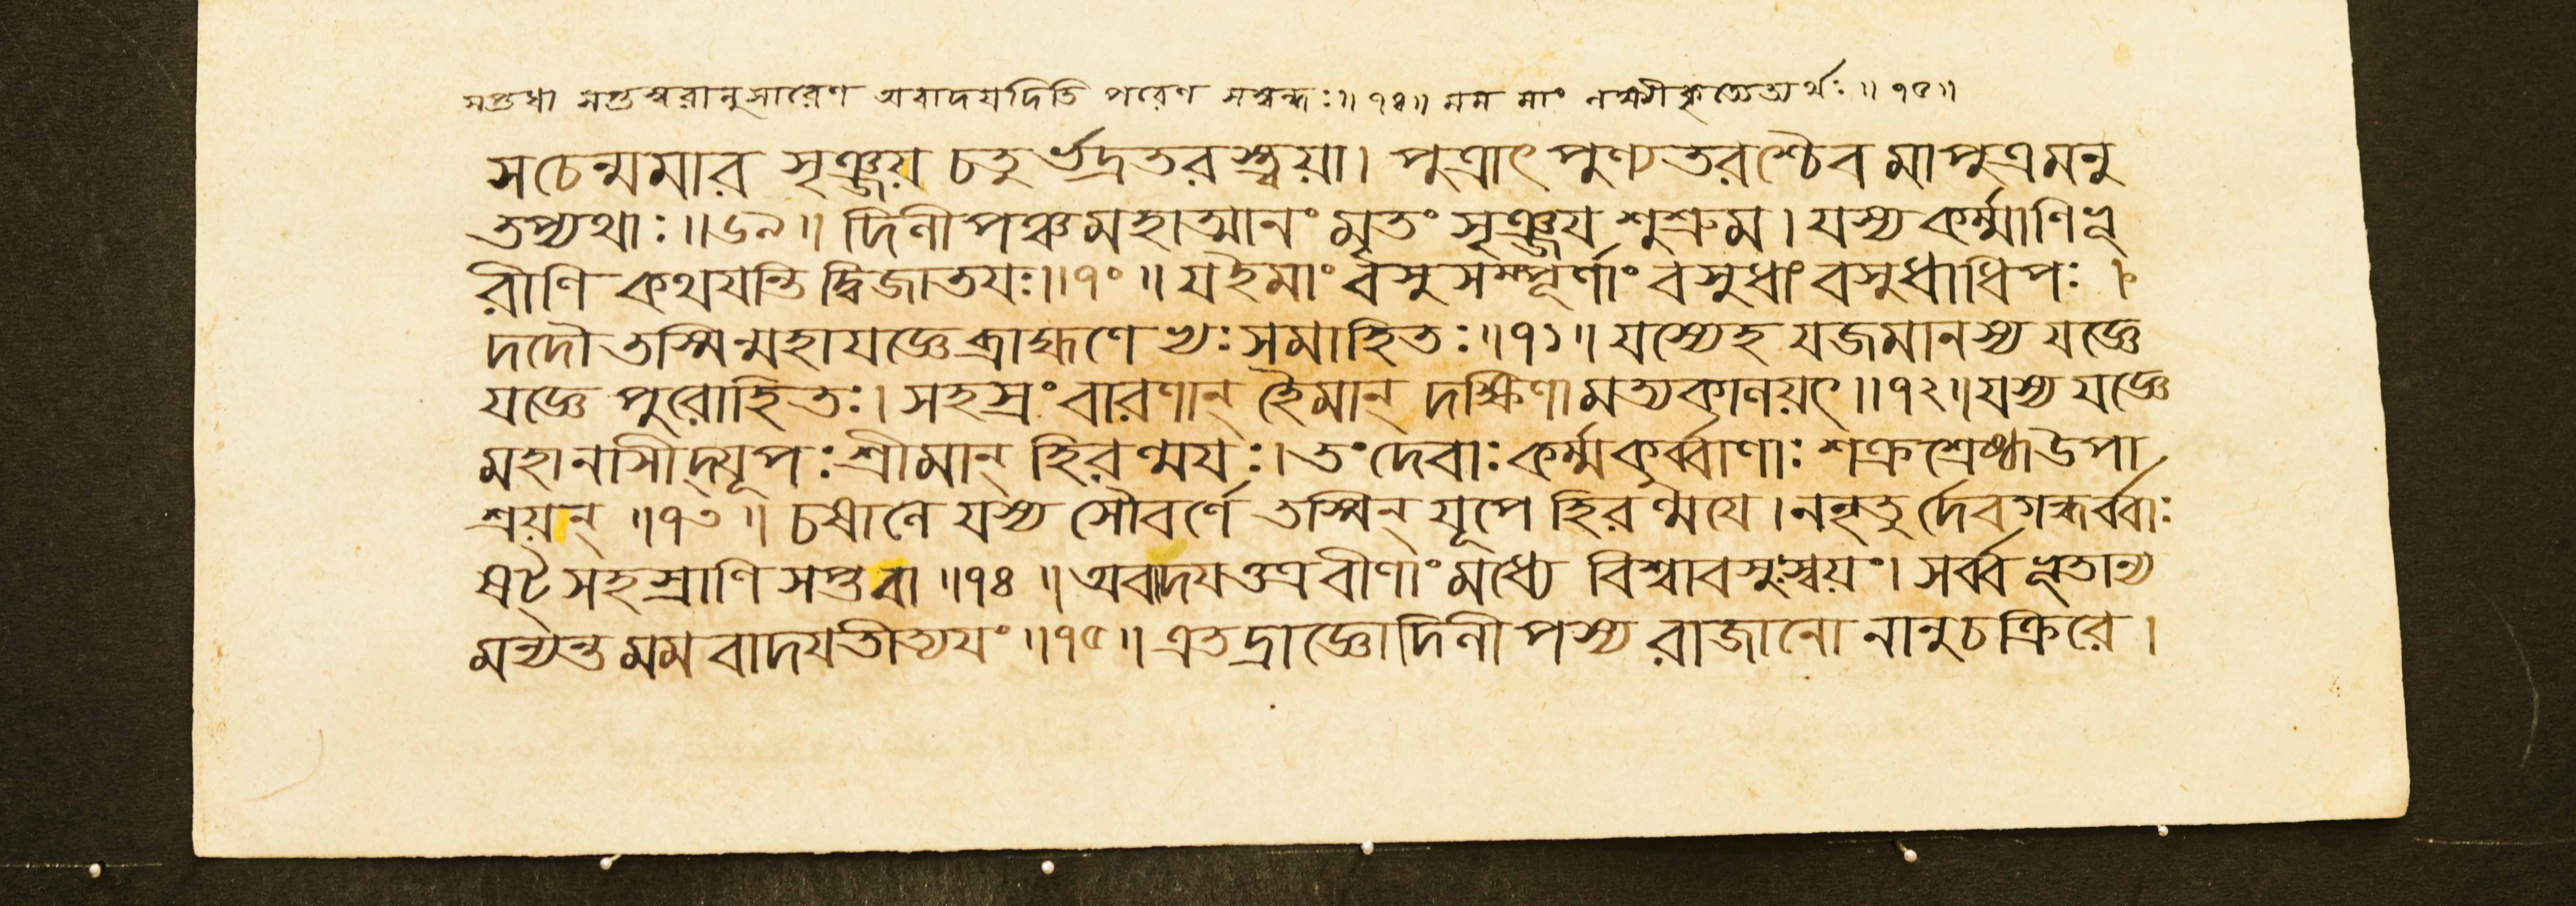 সপ্তধা সপ্তস্বরানুসারেণ অবাদয়দিতি পরেণ সম্বন্ধঃ॥ ৭৪॥ মম মাং লক্ষ্যীকৃত্যেত্যর্থঃ॥ ৭৫॥
সচেন্মমার সৃঞ্জয় চতুর্ভদ্রতরস্ত্বয়া। পুত্রাৎ পুণ্যতরশ্চৈব মাপুত্রমনু
তপ্যথাঃ॥৬৯॥ দিলীপঞ্চমহাত্মানং মৃতং সৃঞ্জয শুশ্রুম। যস্য কর্ম্মাণিভূ
রীণি কথযন্তি দ্বিজাতযঃ॥৭০॥ যইমাং বসুসম্পূর্ণাং বসুধাং বসুধাধিপঃ।
দদৌ তস্মিন্মহাযজ্ঞে ব্রাহ্মণেভ্যঃ সমাহিতঃ॥৭১॥ যস্যেহ যজমানস্য যজ্ঞে
যজ্ঞে পুরোহিতঃ। সহস্রং বারণান্ হৈমান্ দক্ষিণামত্যকালয়ৎ॥৭২॥ যস্য যজ্ঞে
মহানাসীদ্যূপঃ শ্রীমান্ হিরণ্ময়ঃ। তং দেবাঃ কর্ম্মকুর্ব্বাণাঃ শক্রশ্রেষ্ঠাউপা
শ্রয়ন্ ॥৭৩॥ চষালে যস্য সৌবর্ণে তস্মিন্ যূপে হিরণ্ময়ে। ননৃতুর্দেবগন্ধর্ব্বাঃ
ষট্সহস্রাণি সপ্তধা ॥৭৪॥ অবাদযত্তত্র বীণাং মধ্যে বিশ্বাবসুঃস্বয়ং। সর্ব্বভূতান্য
মন্যন্ত মম বাদযতীত্যযং ॥৭৫॥ এতদ্রাজ্ঞোদিলীপস্য রাজানো নানুচক্রিরে।